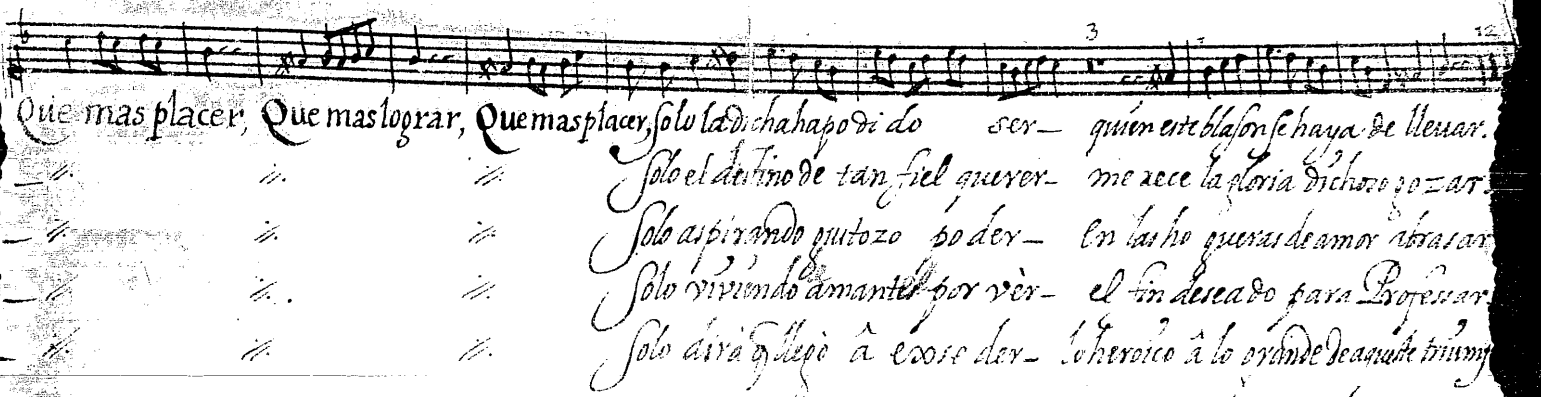 3 12
Que mas placer, Que mas lograr, Que mas placer, solo la dicha ha podi do ser_ quien este blason se haya de lleuar.
_ //. //. //. Solo el destino de tan fiel querer_ merece la gloria dichozo gozar.
_ //. //. //. Solo aspirando gustozo poder_ En las hogueras de amor abrasar
_ //. //. //. Solo viviendo amantes por vèr_ el fin deseado para Professar.
_ //. //. //. Solo dirà q llegò â exseder_ lo heroico â lo grande de aqueste triump